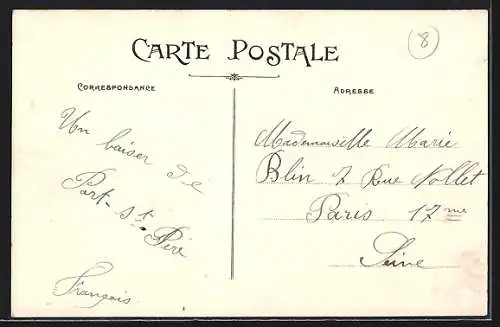 CARTE POSTALE
8
CORRESPONDANCE
Un baiser de
Port-St
Père
François
ADRESSE
Mademoiselle Marie
Blin 7 Rue Nollet
Paris 17me
Seine